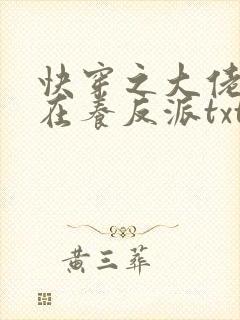 快穿之大佬
在养反派txt
黄三葬